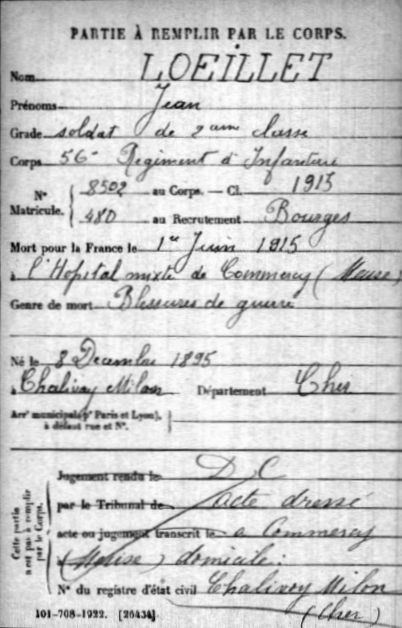 PARTIE À REMPLIR PAR LE CORPS.
Nom LOEILLET
Prénoms Jean
Grade soldat de 2eme classe
Corps 56e Regiment d'Infanterie
N° Matricule. 8502 au Corps. — Cl. 1915
480 au Recrutement Bourges
Mort pour la France le 1er Juin 1915
à l'Hopital mixte de Commercy (Meuse)
Genre de mort Blessures de guerre
Né le 8 Decembre 1895
à Chalivoy Milon Département Cher
Arrt municipal (pr Paris et Lyon),
à défaut rue et N°.
Cette partie n'est pas à remplir par le Corps.
Jugement rendu le D C
par le Tribunal de acte dressé
acte ou jugement transcrit le a Commercy
(Meuse) domicile:
N° du registre d'état civil Chalivoy Milon
(Cher)
101-708-1922. [26434]